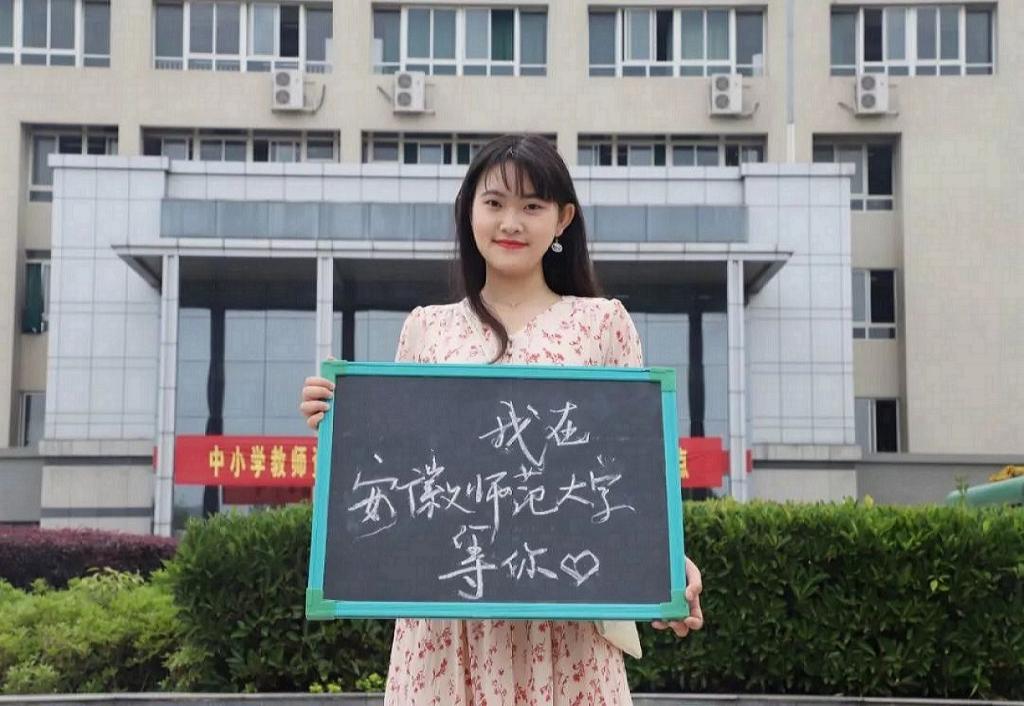 中小学教师
我在
安徽师范大学
等你♡